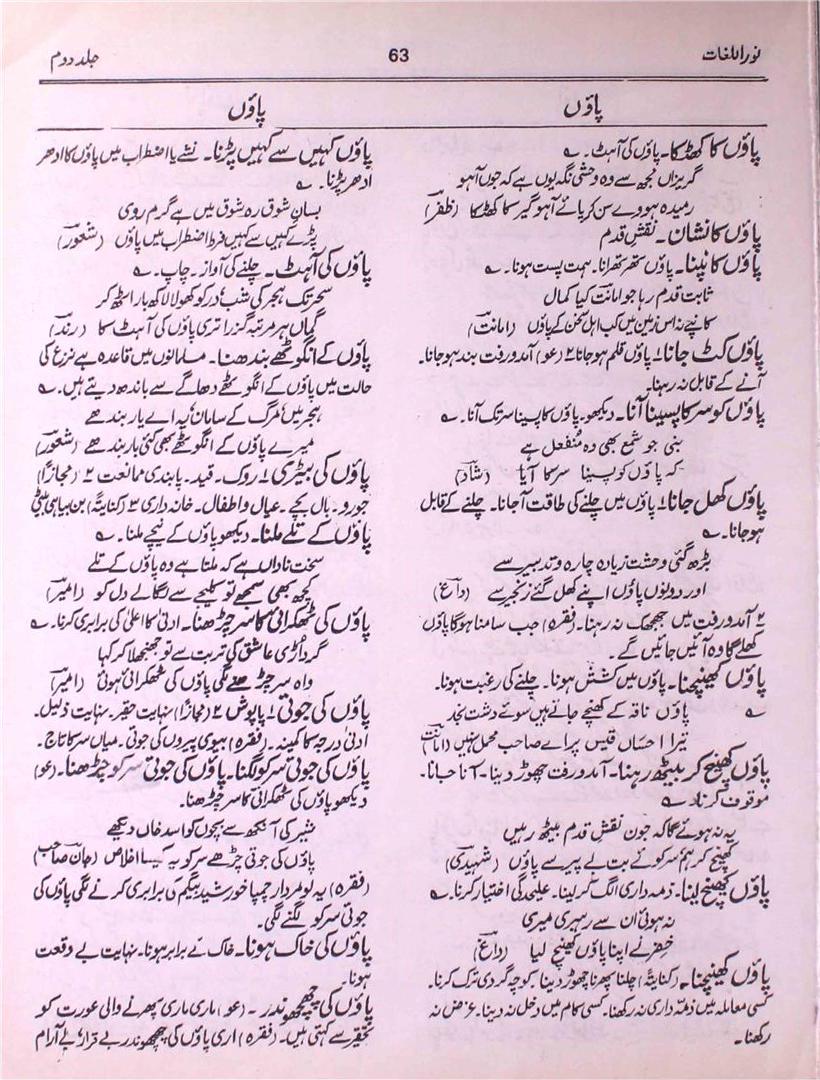 نوراللغات
63
جلد دوم
پاؤں
پاؤں
پاؤں کا کھڑکا۔ پاؤں کی آہٹ۔ ؎
گریزاں مجھ سے وہ وحشی نگہ یوں ہے کہ جوں آہو
رمیدہ ہووے سن کر پائے آہو گیر کا کھڑکا (ظفر)
پاؤں کا نشان۔ نقش قدم
پاؤں کانپنا۔ پاؤں تھرتھرانا۔ ہمت پست ہونا۔ ؎
ثابت قدم رہا جو امانت کیا کمال
کانپے نہ اس زمین میں کب اہل سخن کے پاؤں (امانت)
پاؤں کٹ جانا ۱ پاؤں قلم ہو جانا ۲ (عو) آمد و رفت بند ہو جانا۔
آنے کے قابل نہ رہنا۔
پاؤں کو سر کا پسینا آنا۔ دیکھو۔ پاؤں کا پسینا سر تک آنا۔ ؎
بنی جو شمع بھی وہ منفعل ہے
کہ پاؤں کو پسینا سر کا آیا (شاد)
پاؤں کھل جانا ۱ پاؤں میں چلنے کی طاقت آ جانا۔ چلنے کے قابل
ہو جانا۔ ؎
بڑھ گئی وحشت زیادہ چارہ و تدبیر سے
اور دونوں پاؤں اپنے کھل گئے زنجیر سے (داغ)
۲ آمد و رفت میں جھجھک نہ رہنا۔ (فقرہ) جب سامنا ہوگا پاؤں
کھلے گا وہ آئیں جائیں گے۔
پاؤں کھینچنا۔ پاؤں میں کشش ہونا۔ چلنے کی رغبت ہونا۔
؎ پاؤں ناقہ کے کھنچے جاتے ہیں سوئے دشت نجد
تیرا احساں قیس پر اے صاحب محمل نہیں (امانت)
پاؤں کھینچ کر بیٹھ رہنا۔ آمد و رفت چھوڑ دینا۔ آنا جانا
موقوف کرنا۔ ؎
یہ نہ ہوئے گا کہ جون نقش قدم بیٹھ رہیں
کھینچ کر ہم سر کوئے بت بے پیر سے پاؤں (شہیدی)
پاؤں کھینچ لینا۔ ذمہ داری الگ کر لینا۔ علیحدگی اختیار کرنا۔ ؎
نہ ہوئی ان سے رہبری میری
خضر نے اپنا پاؤں کھینچ لیا (داغ)
پاؤں کھینچنا۔ (کنایتہً) چلنا پھرنا چھوڑ دینا کوچہ گردی ترک کرنا۔
کسی معاملہ میں ذمہ داری نہ رکھنا۔ کسی کام میں دخل نہ دینا۔ غرض نہ
رکھنا۔
پاؤں کہیں سے کہیں پڑنا۔ نشے یا اضطراب میں پاؤں کا ادھر
ادھر پڑنا۔ ؎
بسانِ شوق رہ شوق میں ہے گرم روی
پڑے کہیں سے کہیں فرط اضطراب میں پاؤں (شعور)
پاؤں کی آہٹ۔ چلنے کی آواز۔ چاپ۔ ؎
سحر تک ہجر کی شب در کو کھولا لاکھ بار اٹھ کر
گماں ہر مرتبہ گزرا تری پاؤں کی آہٹ کا (رند)
پاؤں کے انگوٹھے بندھنا۔ مسلمانوں میں قاعدہ ہے نزع کی
حالت میں پاؤں کے انگوٹھے دھاگے سے باندھ دیتے ہیں۔ ؎
ہجر میں مرگ کے سامان یہ اے یار بندھے
میرے پاؤں کے انگوٹھے بھی کئی بار بندھے (شعور)
پاؤں کی بیڑی ۱ روک۔ قید۔ پابندی ممانعت ۲ (مجازاً)
جورو۔ بال بچے۔ عیال و اطفال۔ خانہ داری ۳ (کنایتہً) بن بیاہی بیٹی
پاؤں کے تلے ملنا۔ دیکھو پاؤں کے نیچے ملنا۔ ؎
سخت ناداں ہے کہ ملتا ہے وہ پاؤں کے تلے
کچھ بھی سمجھے تو کلیجے سے لگالے دل کو (امیر)
پاؤں کی ٹھکرائی کا سر چڑھنا۔ ادنیٰ کا اعلیٰ کی برابری کرنا۔ ؎
گرد اڑی عاشق کی تربت سے تو جھنجھلا کر کہا
واہ سر چڑھنے لگی پاؤں کی ٹھکرائی ہوئی (امیر)
پاؤں کی جوتی ۱ پاپوش ۲ (مجازاً) نہایت حقیر۔ نہایت ذلیل۔
ادنیٰ درجہ کا کمینہ۔ (فقرہ) بیوی پیروں کی جوتی۔ میاں سر کا تاج۔
پاؤں کی جوتی سر کو لگنا۔ پاؤں کی جوتی سر کو چڑھنا۔ (عو)
دیکھو پاؤں کی ٹھکرائی کا سر چڑھنا۔
شیر کی آنکھ سے بچوں کو اسد خاں دیکھے
پاؤں کی جوتی چڑھے سر کو یہ کیسا اخلاص (جان صاحب)
(فقرہ) یہ لو مردار چمپا خورشید بیگم کی برابری کرنے لگی پاؤں کی
جوتی سر کو لگنے لگی۔
پاؤں کی خاک ہونا۔ خاک کے برابر ہونا۔ نہایت بے وقعت
ہونا۔
پاؤں کی چھچھوندر۔ (عو) ماری ماری پھرنے والی عورت کو
تحقیر سے کہتی ہیں۔ (فقرہ) اری پاؤں کی چھچھوندر بے قرار بے آرام